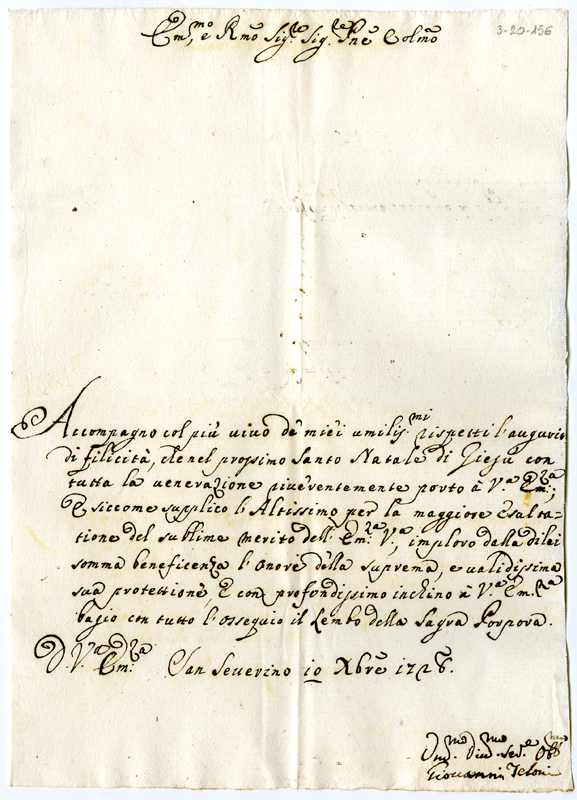 Em.mo, e Rmo Sig.re Sig.re Pne Colmo
3-20-156
Accompagno col più uiuo de miei umilis.mi rispetti l'augurio
di filicità, che nel prossimo Santo Natale di Giesù con
tutta la uenerazione riuerentemente porto à V.a Em.za;
E siccome supplico l'Altissimo per la maggiore Esalta-
tione del sublime merito dell'Em.za V.a, imploro dalla di lei
somma beneficenza l'onore della suprema, e ualidissima
sua protettione, E con profondissimo inchino à V.a Em.za
bacio con tutto l'ossequio il Lembo della Sagra Porpora.
D. V.a Em.za San Seuerino 10 Xbre 1728.
Um.mo Diu.mo Ser.e Obb.mo
Giouanni